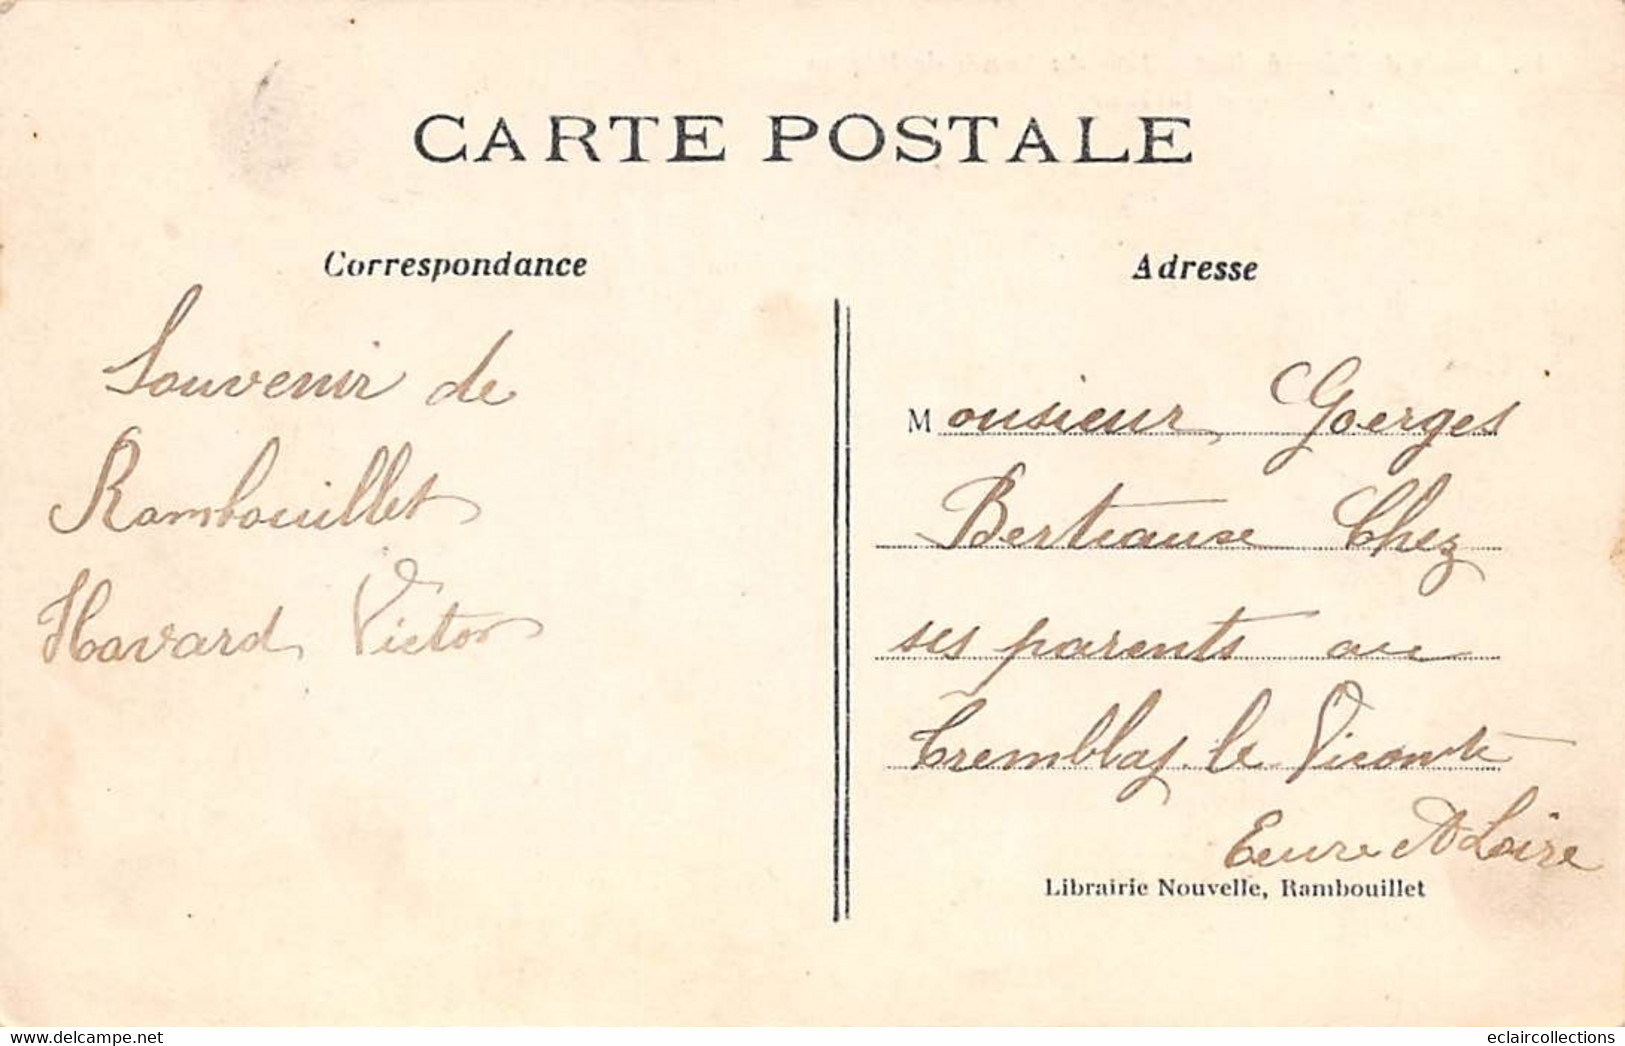 CARTE POSTALE
Correspondance
Souvenir de
Rambouillet
Havard Victor
Adresse
Monsieur Goerges
Berteause Chez
ses parents au
Tremblay le Vicomte
Eure et Loire
Librairie Nouvelle, Rambouillet
www.delcampe.net
eclaircollections